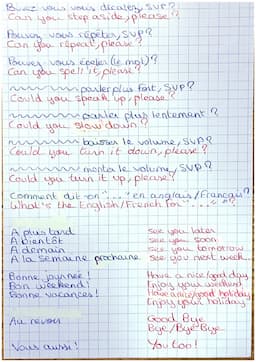 vous vous décalez, SVP?
Can you step aside, please?
Pouvez vous répéter, SVP?
Can you repeat, please?
Pouvez vous épeler (le mot)?
Can you spell it, please?
parler plus fort, SVP
Could you speak up, please?
parler plus lentement?
Could you slow down?
baisser le volume, SVP?
Could you turn it down, please?
monter le volume, SVP?
Could you turn it up, please?
Comment dit-on "..." en anglais/Français?
What's the English/French for "..."?
A plus tard see you later
A bientôt see you soon
A demain see you tomorrow
A la semaine prochaine see you next week
Bonne journée! Have a nice/good day
Bon weekend! Enjoy your weekend
Bonne vacances! Have a nice/good holiday
Enjoy your holiday
Au revoir Good Bye
Bye/Bye Bye
Vous aussi! You too!